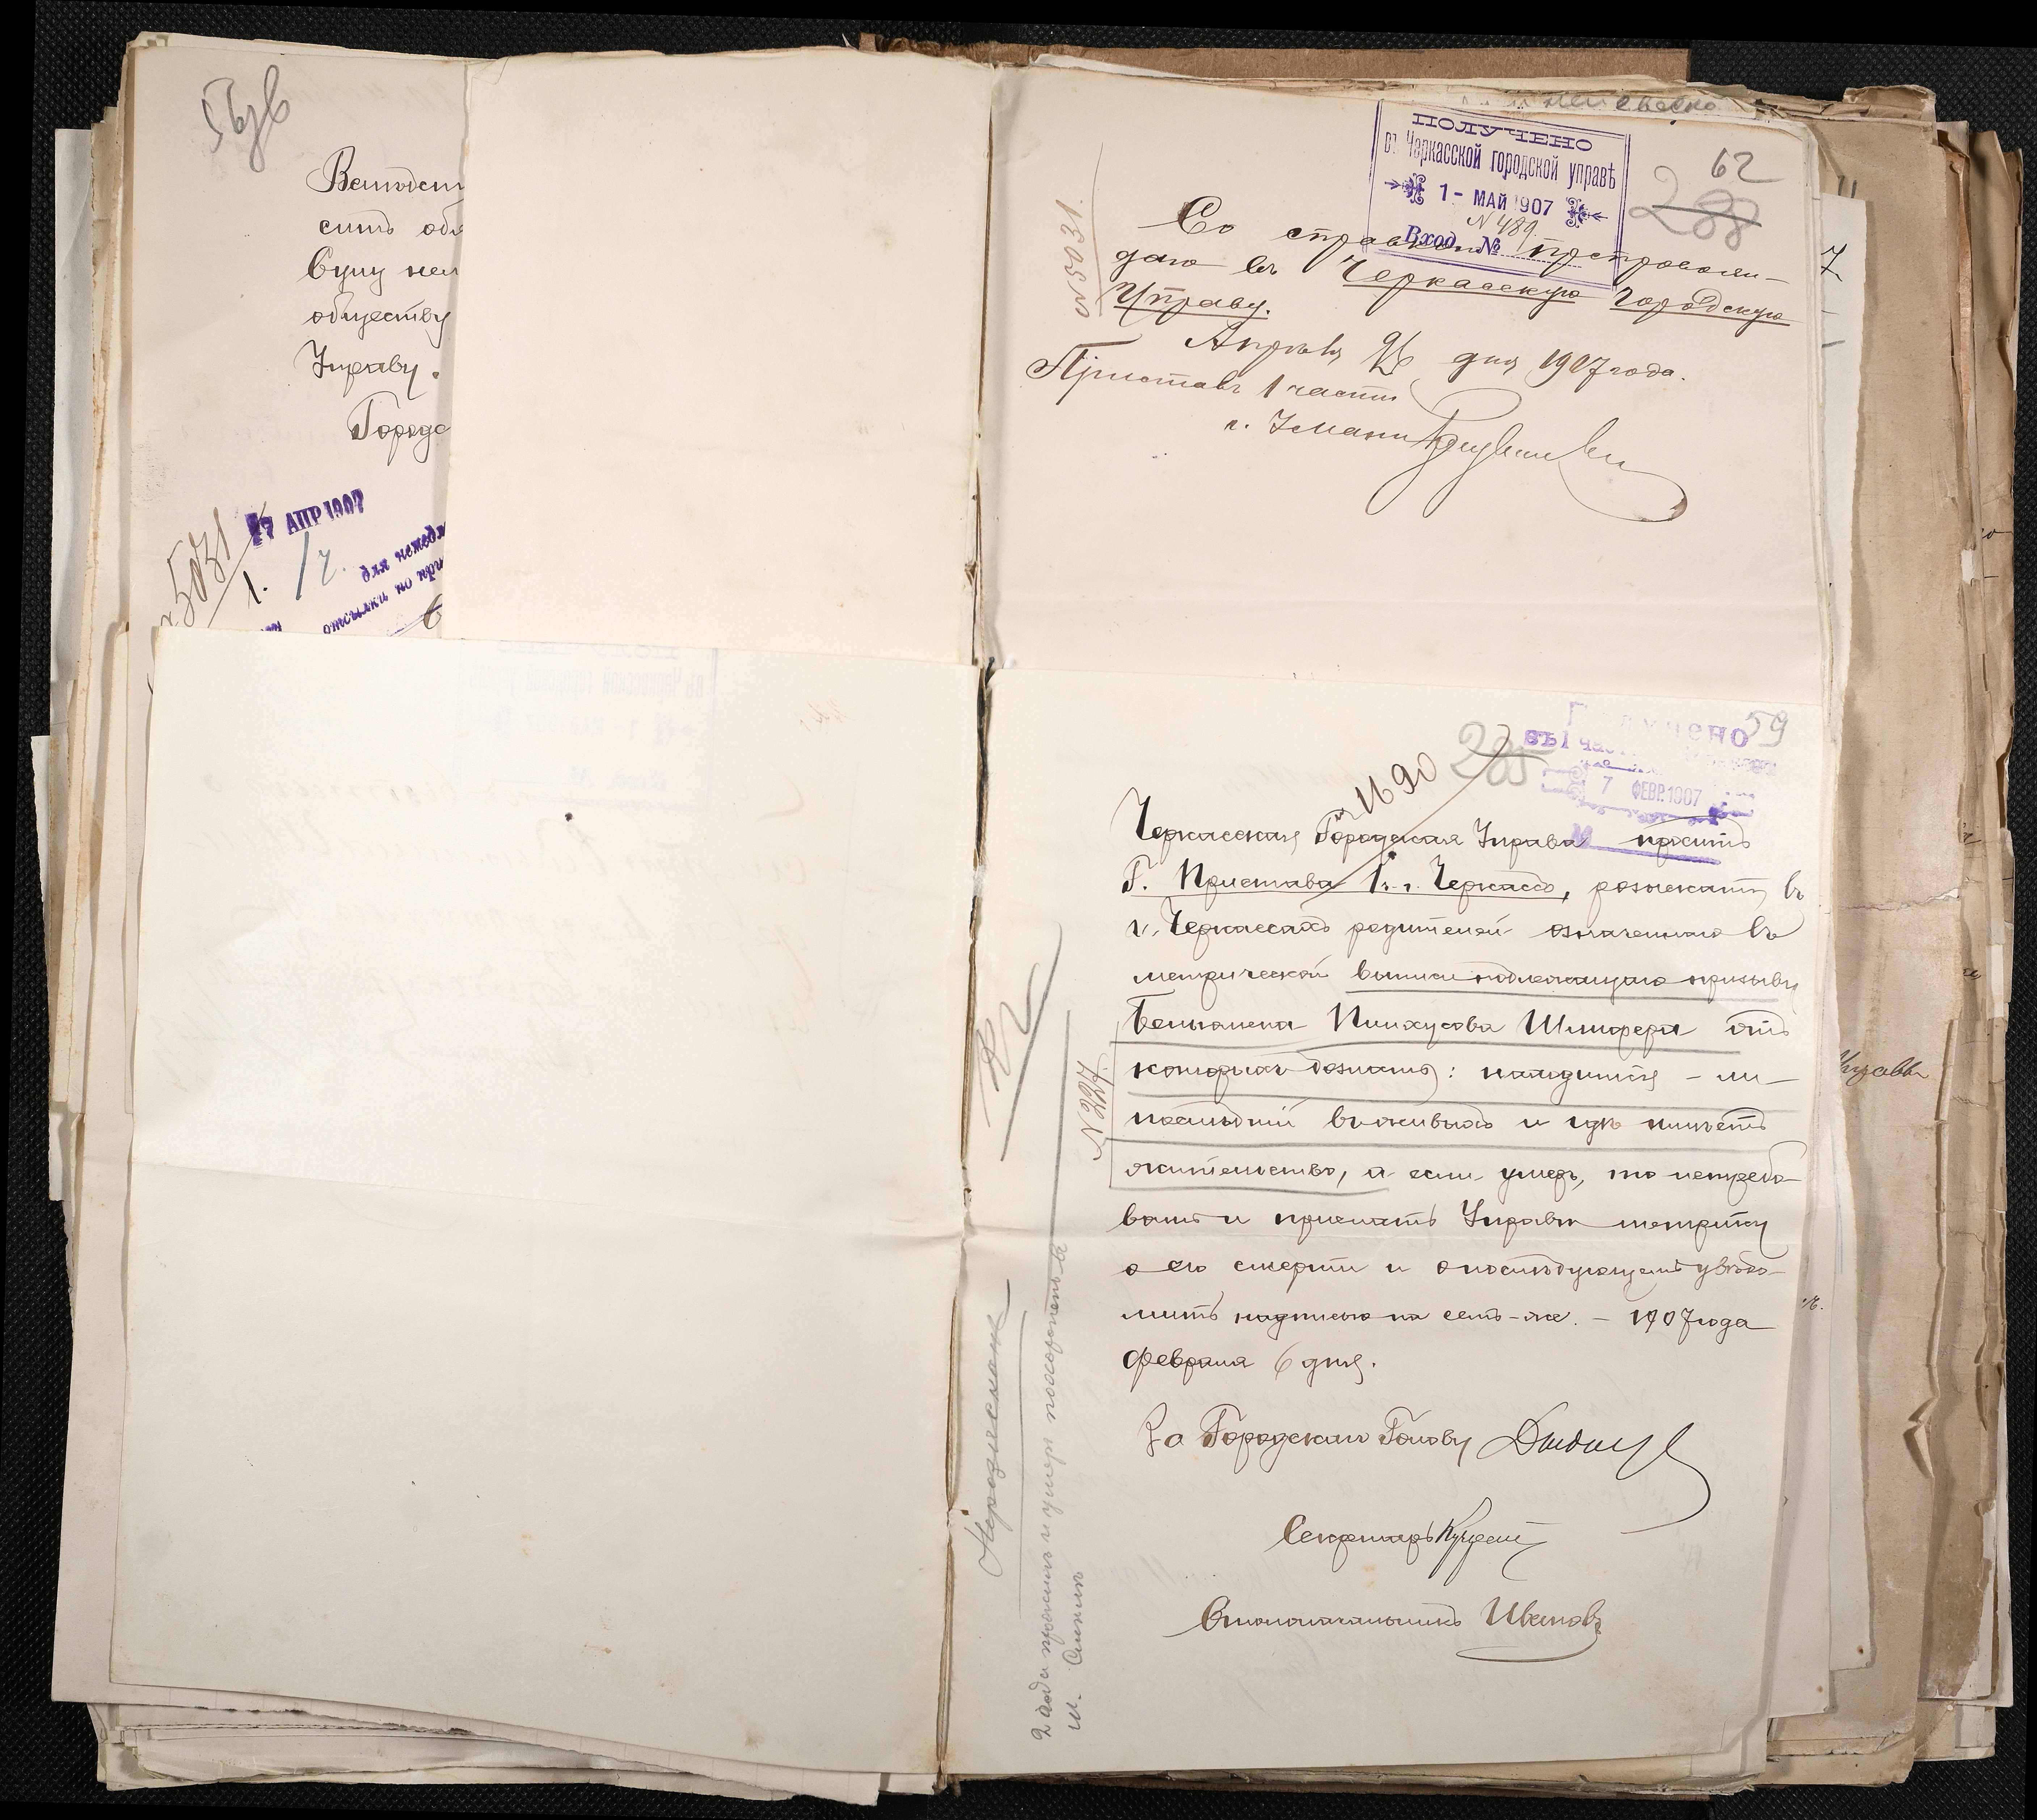 Вслѣдст
ситъ объ
Сyму неи
обществу
Управу.
Городс
17 АПР 1907
№ 5031
1. /ч.
для немедл
отсылки по при
62
288
ПОЛУЧЕНО
въ Черкасской городской управѣ
1 - МАЙ 1907
N 489
Вход. №
N 5031.
Со справкою препровож-
даю въ Черкасскую Городскую
Управу.
Апрѣля 26 дня 1907 года.
Приставъ 1 части
г. Умани
59
285
Получено
въ 1 час
7 ФЕВР. 1907
№
№ 1690
Черкасская Городская Управа проситъ
Г. Пристава 1 ч. г. Черкассъ, розыскать въ
г. Черкассахъ родителей означеннаго въ
метрической выписи подлежащаго призыву
Беньомена Пинхусова Шлиферa отъ
которыхъ дознать: находится-ли-
послѣдній въ живыхъ и гдѣ имѣетъ
жительство, а если умеръ, то истребо-
вать и прислать Управѣ метрику
о его смерти и о послѣдующемъ увѣдо-
мить надписью на семъ-же. - 1907 года
февраля 6 дня.
За Городскаго Голову
Секретарь
Столоначальникъ Ивановъ
N 227.
2 года прожилъ и умеръ похороненъ въ
м.
Управы